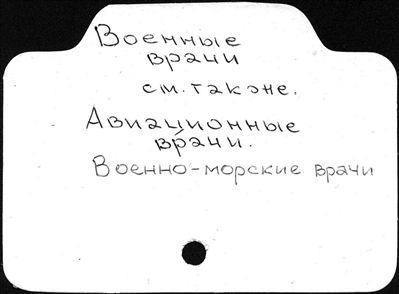 Военные
врачи
см. также.
Авиационные
врачи.
Военно-морские врачи